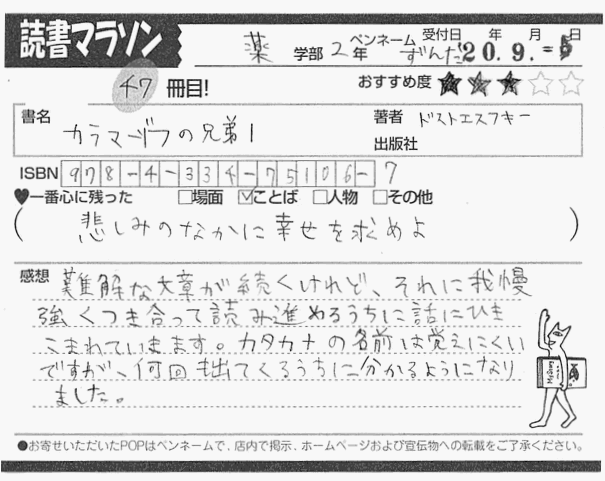 読書マラソン
薬 学部 2年 ペンネーム ずんだ 受付日 年 月 日
20.9.-5
47 冊目! おすすめ度 ★★★☆☆
書名 カラマーゾフの兄弟1 著者 ドストエスフキー
出版社
ISBN 978-4-334-75106-7
♥一番心に残った □場面 ☑ことば □人物 □その他
(悲しみのなかに幸せを求めよ)
感想 難解な文章が続くけれど、それに我慢
強くつき合って読み進めるうちに話にひき
こまれていきます。カタカナの名前は覚えにくい
ですが、何回も出てくるうちに分かるようになり
ました。
●お寄せいただいたPOPはペンネームで、店内で掲示、ホームページおよび宣伝物への転載をご了承ください。